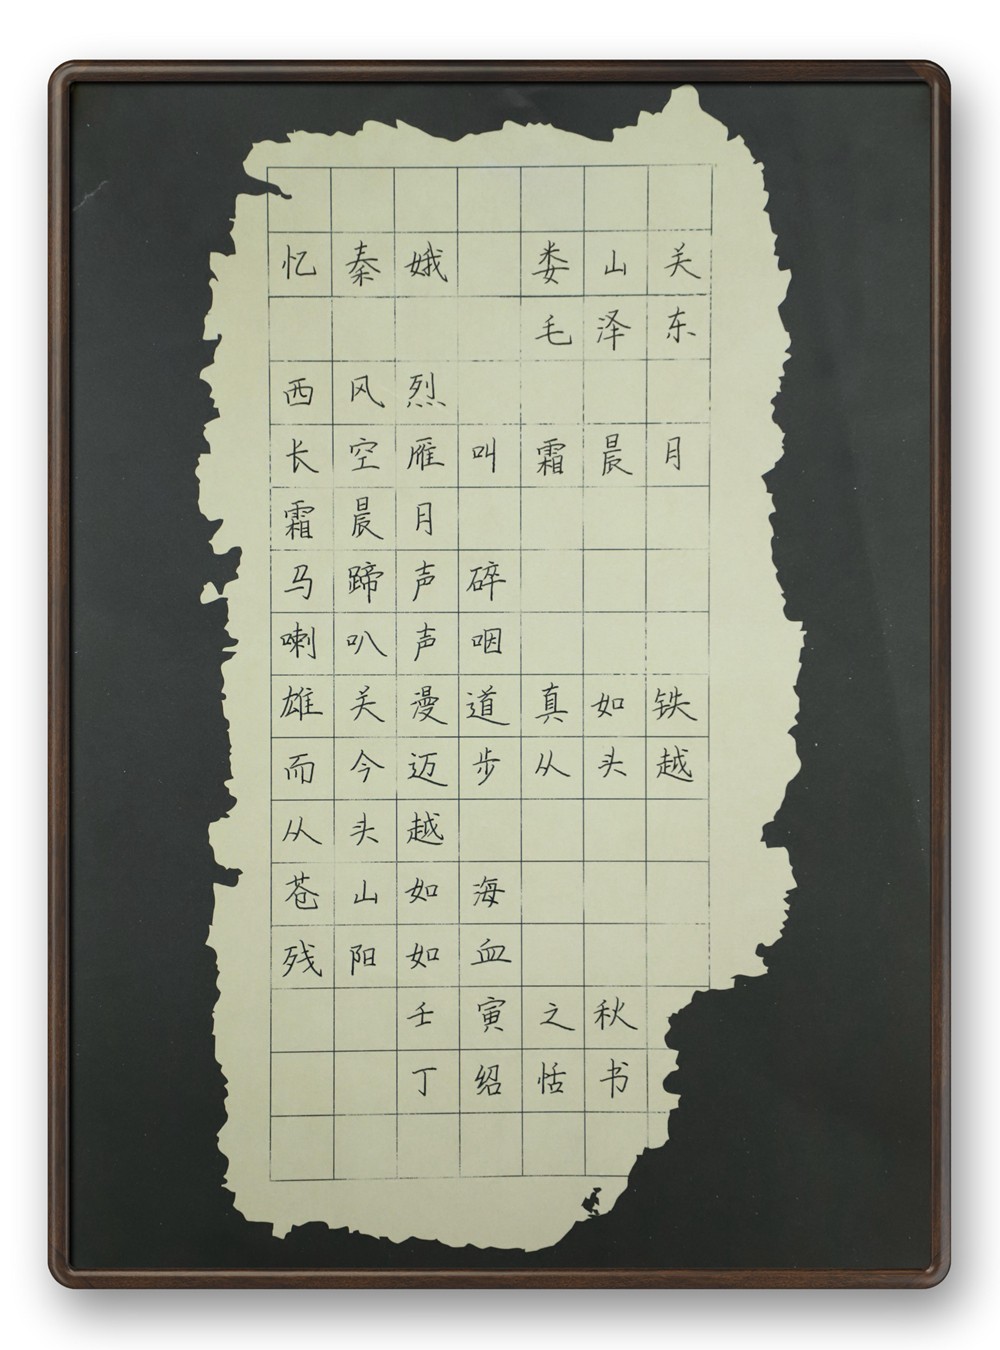 忆秦娥 娄山关
毛泽东
西风烈
长空雁叫霜晨月
霜晨月
马蹄声碎
喇叭声咽
雄关漫道真如铁
而今迈步从头越
从头越
苍山如海
残阳如血
壬寅之秋
丁绍恬书